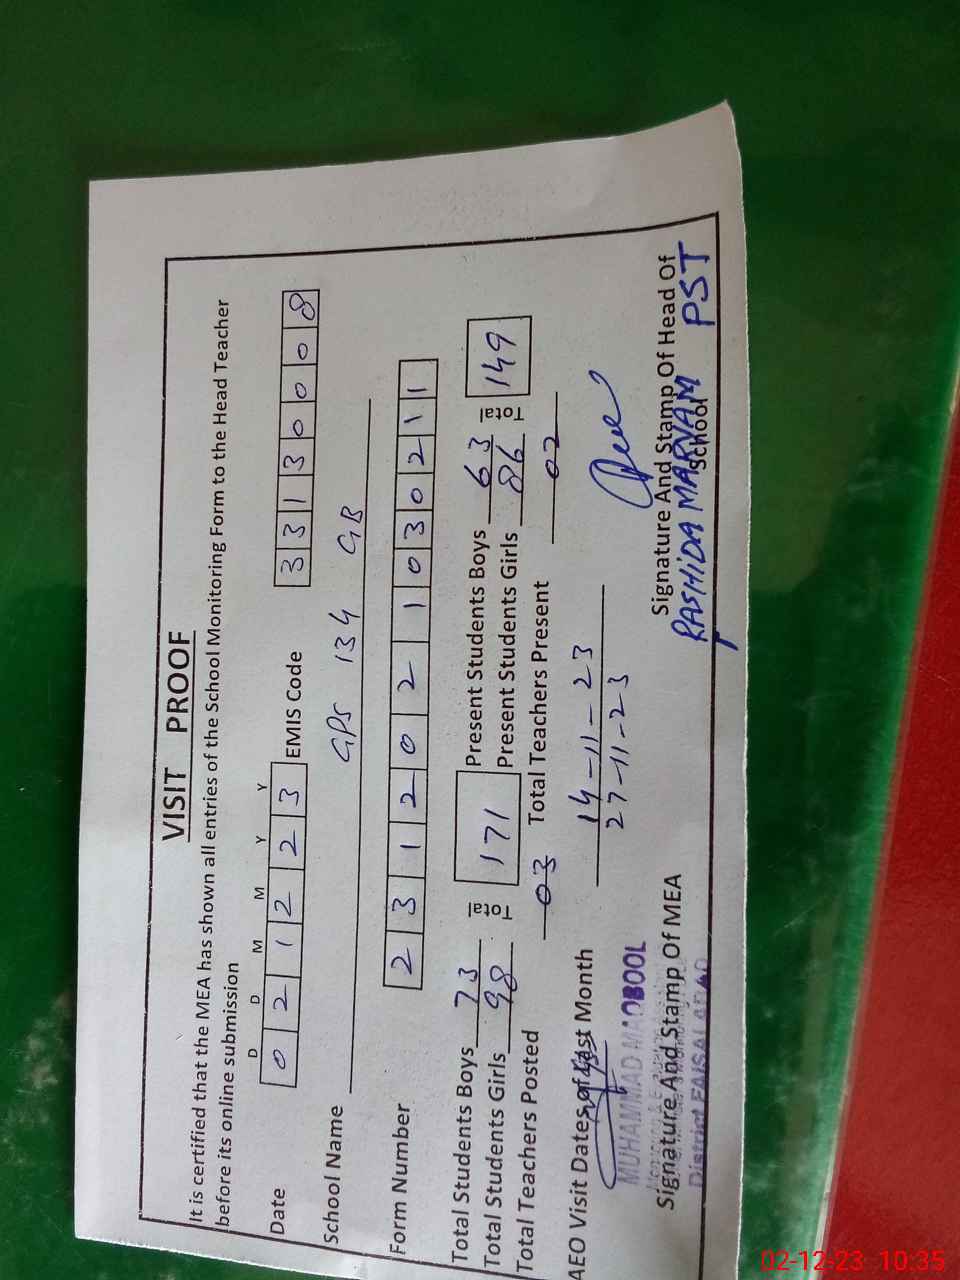 VISIT PROOF
It is certified that the MEA has shown all entries of the School Monitoring Form to the Head Teacher
before its online submission
D D M M Y Y
Date 0 2 1 2 2 3 EMIS Code 3 3 1 3 0 0 0 8
School Name GPS 134 GB
Form Number 2 3 1 2 0 2 1 0 3 0 2 1 1
Total Students Boys 73 Total 171 Present Students Boys 63 Total 149
Total Students Girls 98 Present Students Girls 86
Total Teachers Posted 03 Total Teachers Present 02
AEO Visit Dates of Last Month 14-11-23
27-11-23
MUHAMMAD MAQBOOL
Signature And Stamp Of MEA
District FAISALABAD
Signature And Stamp Of Head Of
School
RASHIDA MARYAM PST
02-12-23 10:35